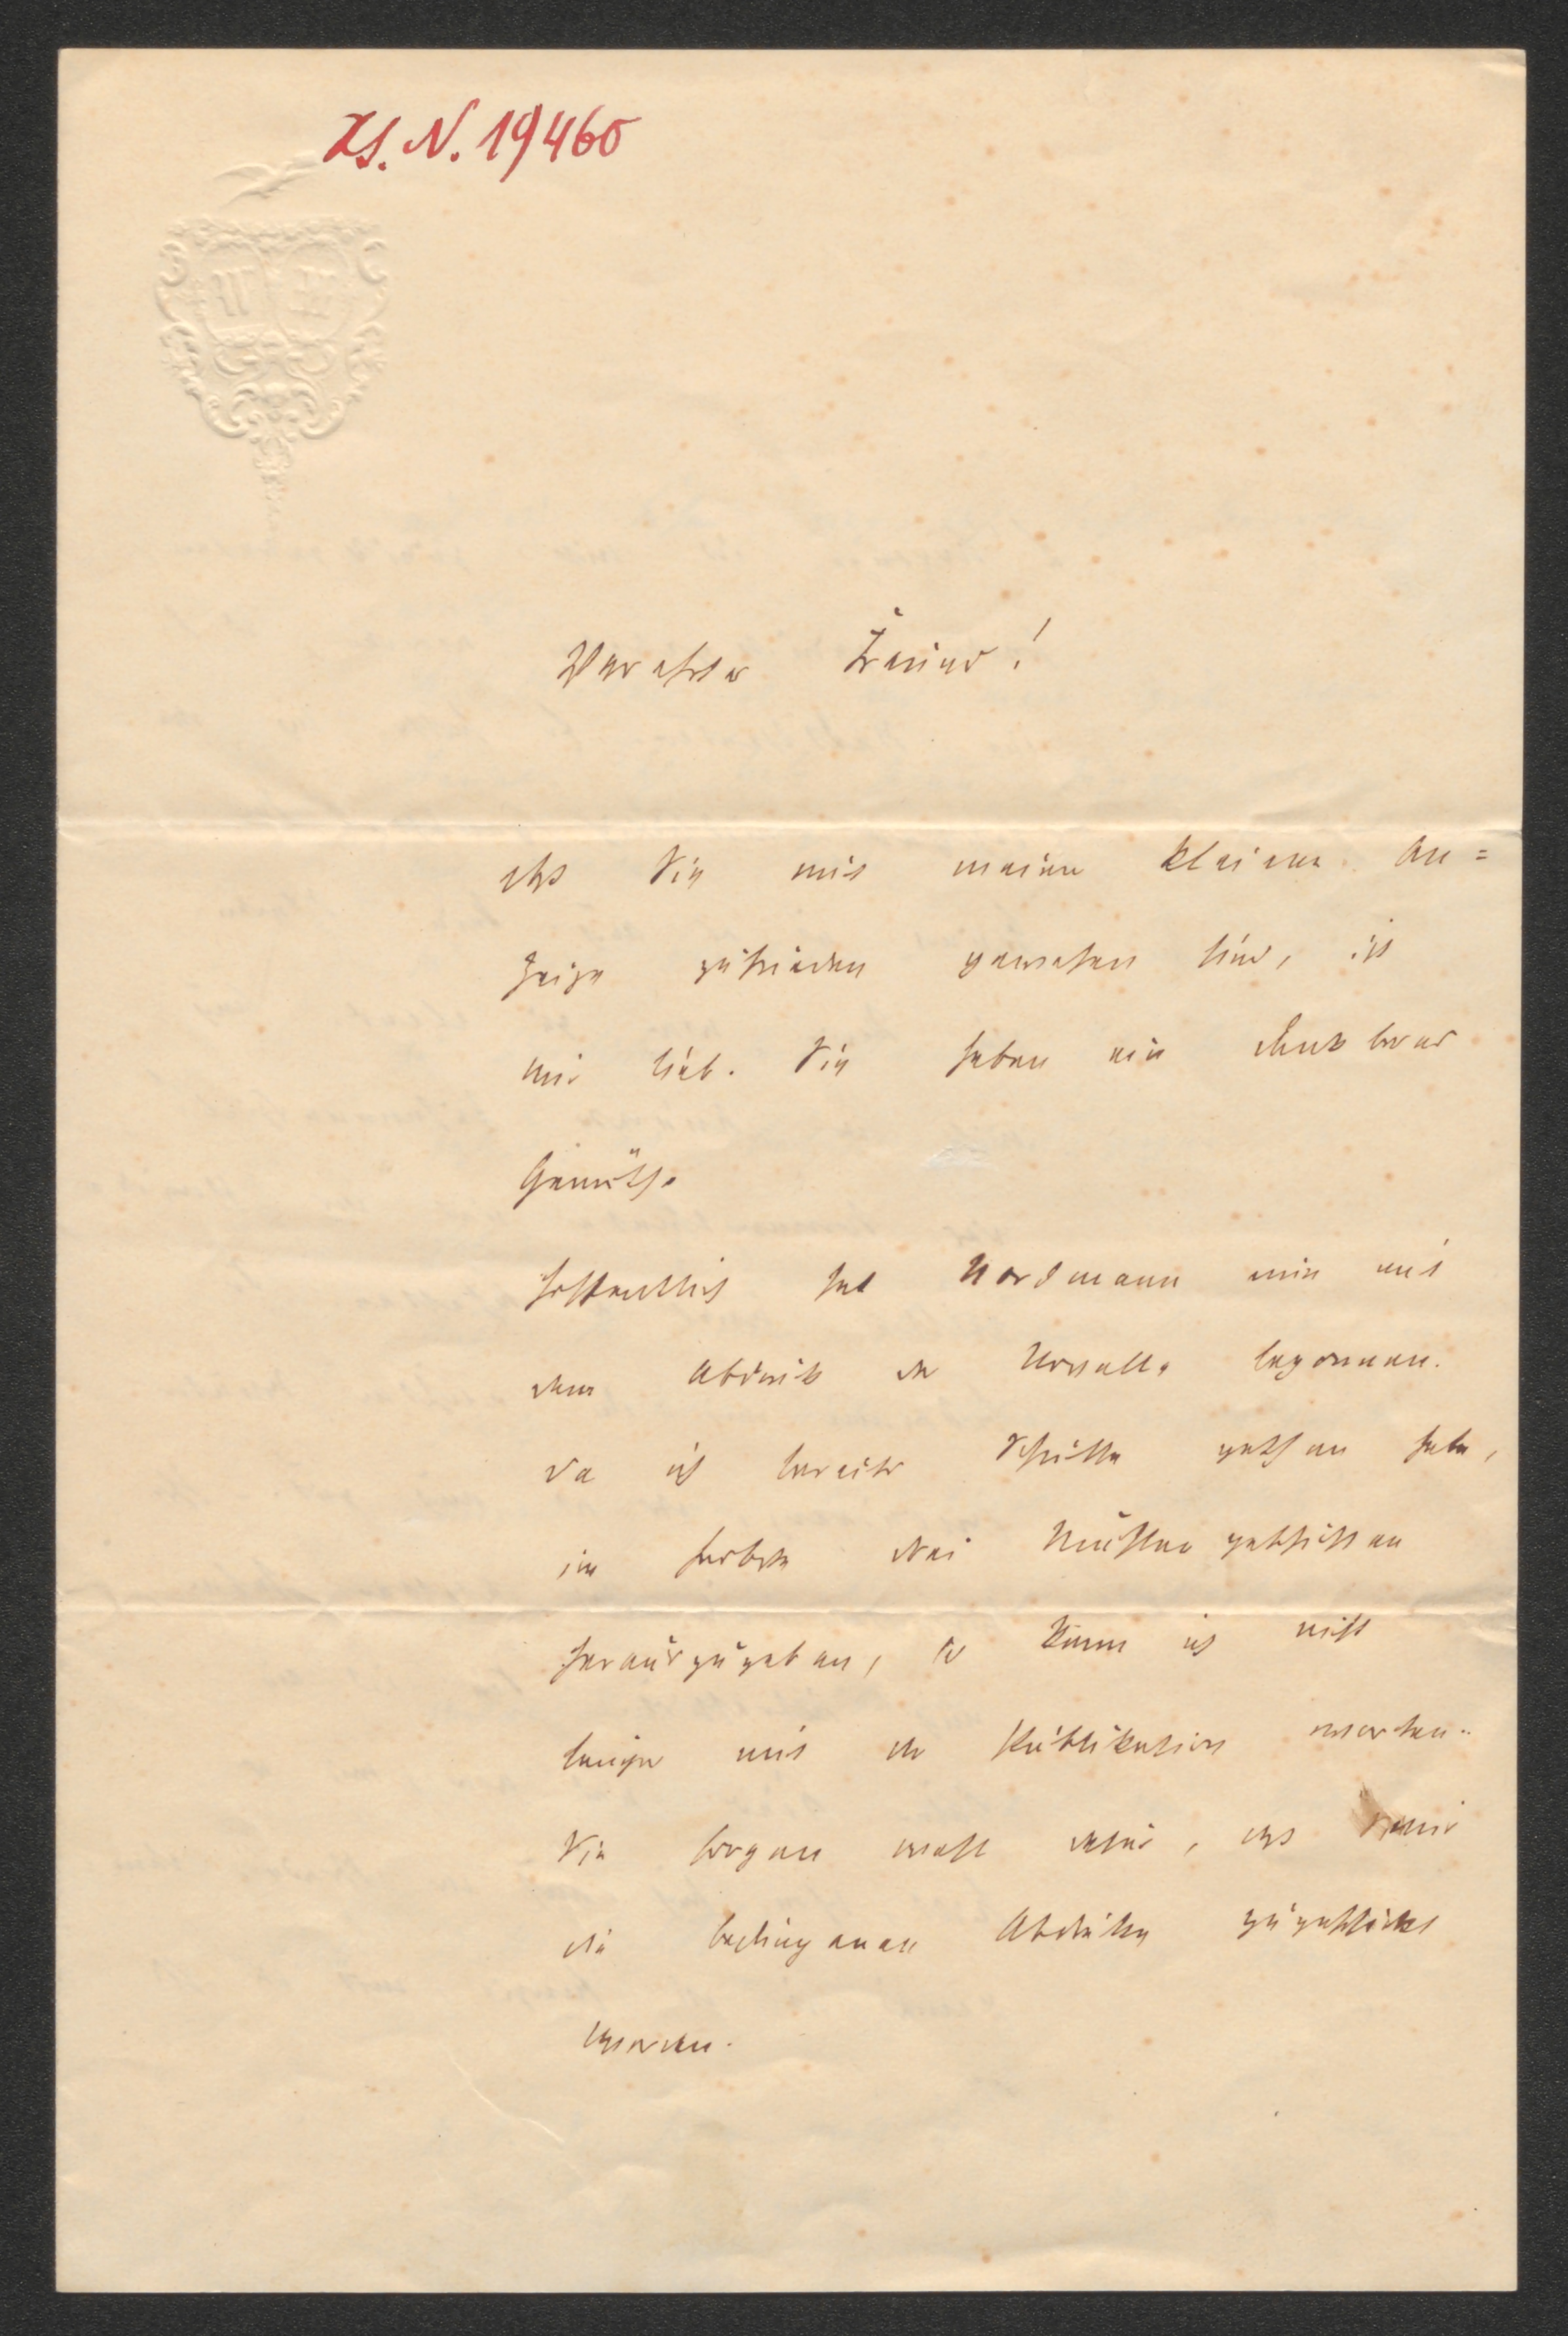 H.I.N. 19460
Verehrter Freund!
daß Sie mit meiner kleinen An=
zeige zufrieden gewesen sind, ist
mir lieb. Sie haben ein dankbares
Gemüth.
Hoffentlich hat Nordmann nun mit
dem Abdruck der Novelle begonnen.
Da ich bereits Schritte gethan habe,
im Herbste drei Künstlergeschichten
herauszugeben, so kann ich nicht
lange mit der Publikation warten.
Sie sorgen wohl dafür, daß mir
die bedungenen Abdrücke zugeschickt
werden.